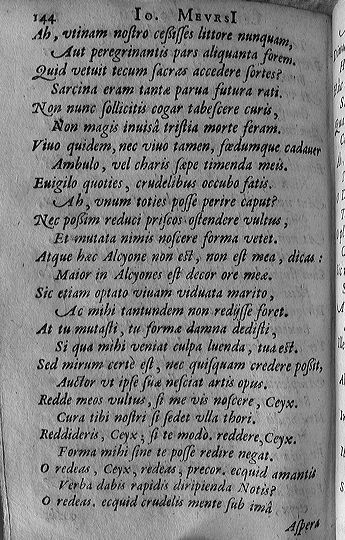 144 IO. MEVRSI
Ah, vtinam nostro cessisses littore nunquam,
Aut peregrinantis pars aliquanta forem.
Quid vetuit tecum sacras accedere sortes?
Sarcina eram tantæ parua futura rati.
Non nunc sollicitis cogar tabescere curis,
Non magis inuisâ tristia morte feram.
Viuo quidem, nec viuo tamen, fœdumque cadauer
Ambulo, vel charis sæpe timenda meis.
Euigilo quoties, crudelibus occubo fatis.
Ah, vnum toties posse perire caput?
Nec possim reduci priscos ostendere vultus,
Et mutata nimis noscere forma vetet.
Atque hæc Alcyone non est, non est mea, dicas:
Maior in Alcyones est decor ore meæ.
Sic etiam optato viuam viduata marito,
Ac mihi tantundem non redijsse foret.
At tu mutasti, tu formæ damna dedisti,
Si qua mihi veniat culpa luenda, tua est.
Sed mirum certè est, nec quisquam credere possit,
Auctor vt ipse suæ nesciat artis opus.
Redde meos vultus, si me vis noscere, Ceyx.
Cura tibi nostri si sedet vlla thori.
Reddideris, Ceyx, si te modo reddere, Ceyx.
Forma mihi sine te posse redire negat.
O redeas, Ceyx, redeas, precor. ecquid amantis
Verba dabis rapidis diripienda Notis?
O redeas. ecquid crudelis mente sub imâ
Aspera